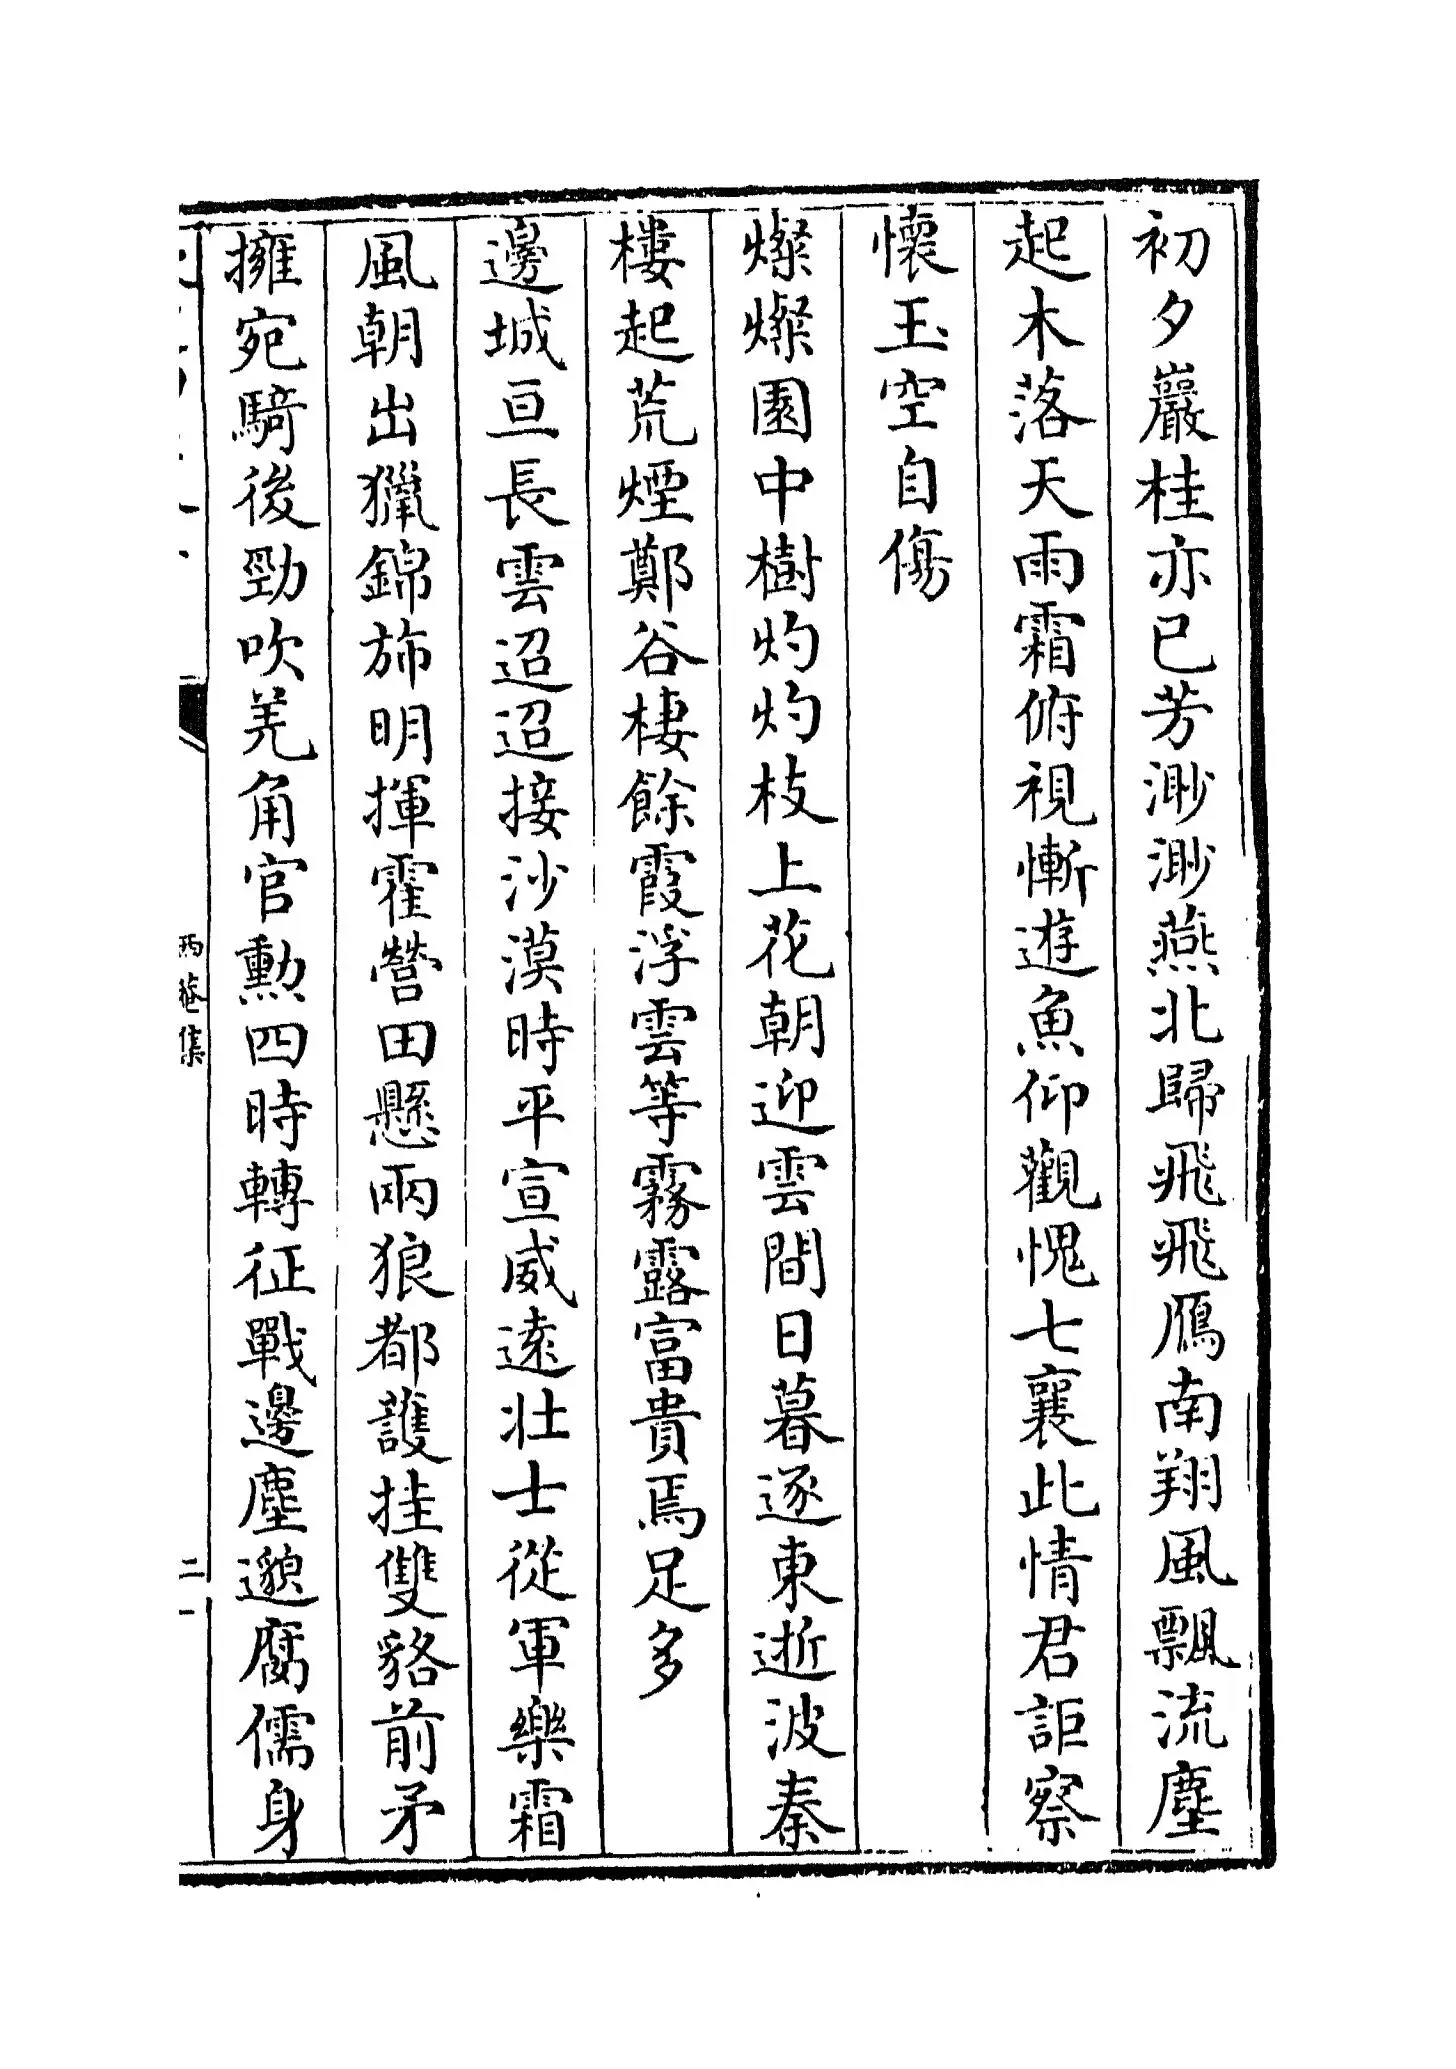 初夕巖桂亦已芳渺渺燕北歸飛飛鴈南翔風飄流塵
起木落天雨霜俯視慚遊魚仰觀愧七襄此情君詎察
懷玉空自傷
燦燦園中樹灼灼枝上花朝迎雲間日暮逐東逝波秦
樓起荒煙鄭谷棲餘霞浮雲等霧露富貴焉足多
邊城亘長雲迢迢接沙漠時平宣威遠壯士從軍樂霜
風朝出獵錦斾明揮霍營田懸兩狼都護挂雙貉前矛
擁宛騎後勁吹羌角官勳四時轉征戰邊塵邈腐儒身
西菴集
二